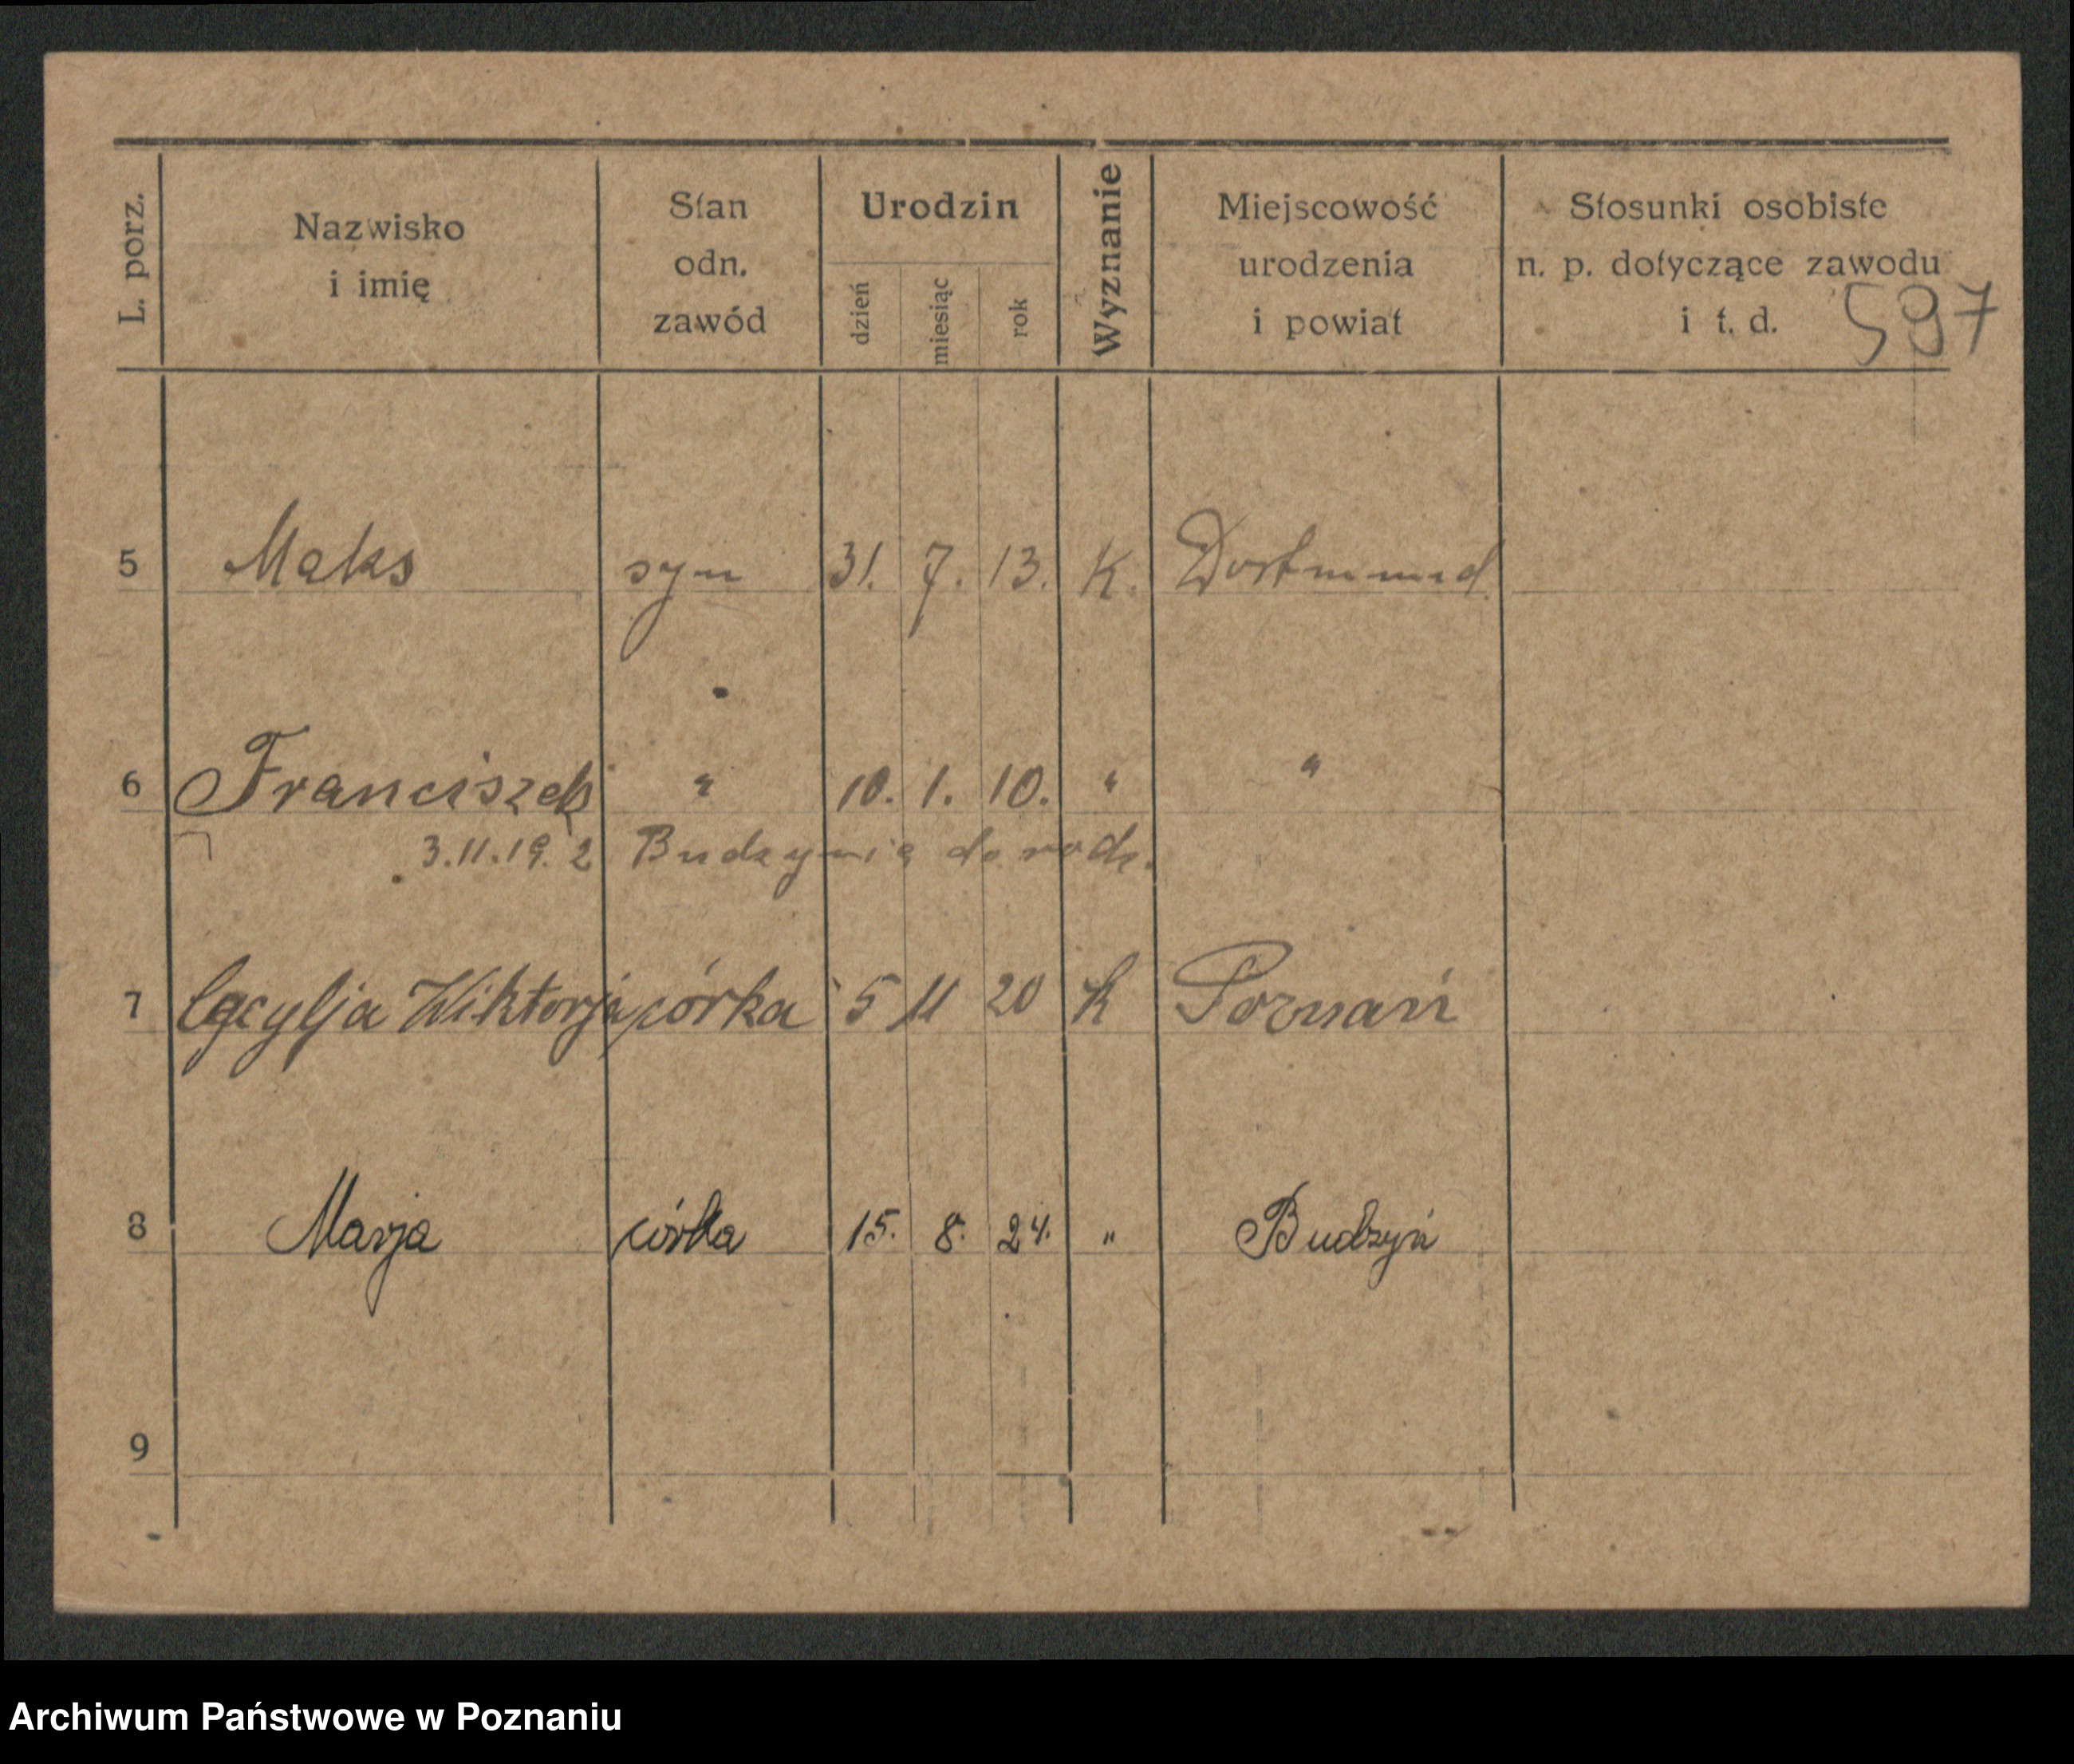 L. porz.
Nazwisko
i imię
Stan
odn.
zawód
Urodzin
dzień
miesiąc
rok
Wyznanie
Miejscowość
urodzenia
i powiat
Stosunki osobiste
n. p. dotyczące zawodu
i t. d.
597
5 Maks syn 31. 7. 13. K. Dortmund
6 Franciszek " 10. 1. 10. " "
3.11.19. z Budzynia do rodz.
7 Cecylja Wiktorja córka 5 11 20 K Poznań
8 Marja córka 15. 8. 24. " Budzyń
9
Archiwum Państwowe w Poznaniu